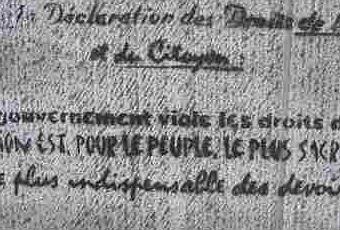 Déclaration des Droits de
et du Citoyen :
gouvernement viole les droits
EST, POUR LE PEUPLE, LE PLUS SACR
plus indispensable des devoi